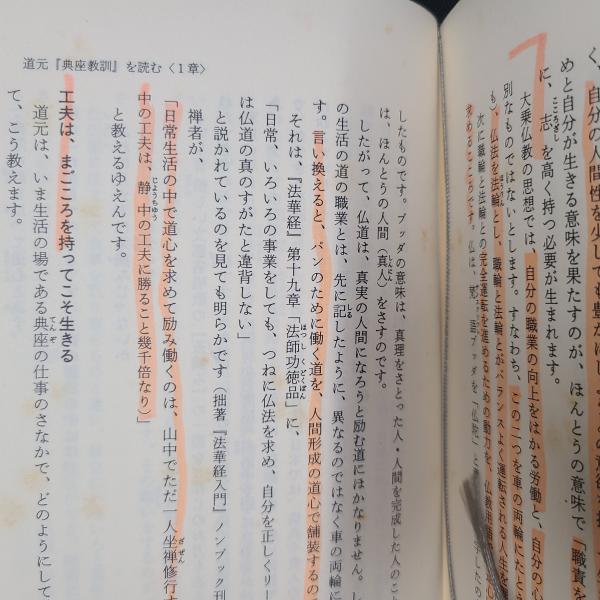 く、自分の人間性を少しでも豊かにし
めと自分が生きる意味を果たすのが、ほんとうの意味で「職責を
に、志を高く持つ必要が生まれます。
大乗仏教の思想では、自分の職業の向上をはかる労働と、自分の心
別なものではないとします。すなわち、この二つを車の両輪にたとえ
も）、仏法を法輪とし、職輪と法輪とがバランスよく運転される人生を
次に職輪と法輪との完全運転を進めるための動力を、仏教用語で
求めるこころです。仏は、梵語ブッダを「仏陀」と
したものです。ブッダの意味は、真理をさとった人・人間を完成した人のこと
は、ほんとうの人間（真人）をさすのです。
したがって、仏道は、真実の人間になろうと励む道にほかなりません。し
の生活の道の職業とは、先に記したように、異なるのではなく車の両輪に
す。言い換えると、パンのために働く道を、人間形成の道心で舗装するの
それは、『法華経』第十九章「法師功徳品」に、
「日常、いろいろの事業をしても、つねに仏法を求め、自分を正しくリー
は仏道の真のすがたと違背しない」
と説かれているのを見ても明らかです（拙著『法華経入門』ノンブック刊
禅者が、
「日常生活の中で道心を求めて励み働くのは、山中でただ一人坐禅修行す
中の工夫は、静中の工夫に勝ること幾千倍なり）」
と教えるゆえんです。
工夫は、まごころを持ってこそ生きる
道元は、いま生活の場である典座の仕事のさなかで、どのようにして
て、こう教えます。
道元『典座教訓』を読む〈1章〉